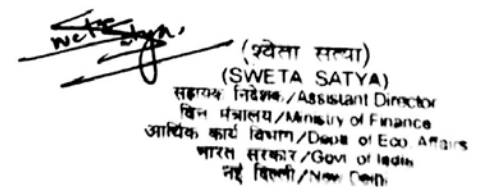 (श्वेता सत्या)
(SWETA SATYA)
सहायक निदेशक/Assistant Director
वित्त मंत्रालय/Ministry of Finance
आर्थिक कार्य विभाग/Deptt of Eco. Affairs
भारत सरकार/Govt of India
नई दिल्ली/New Delhi